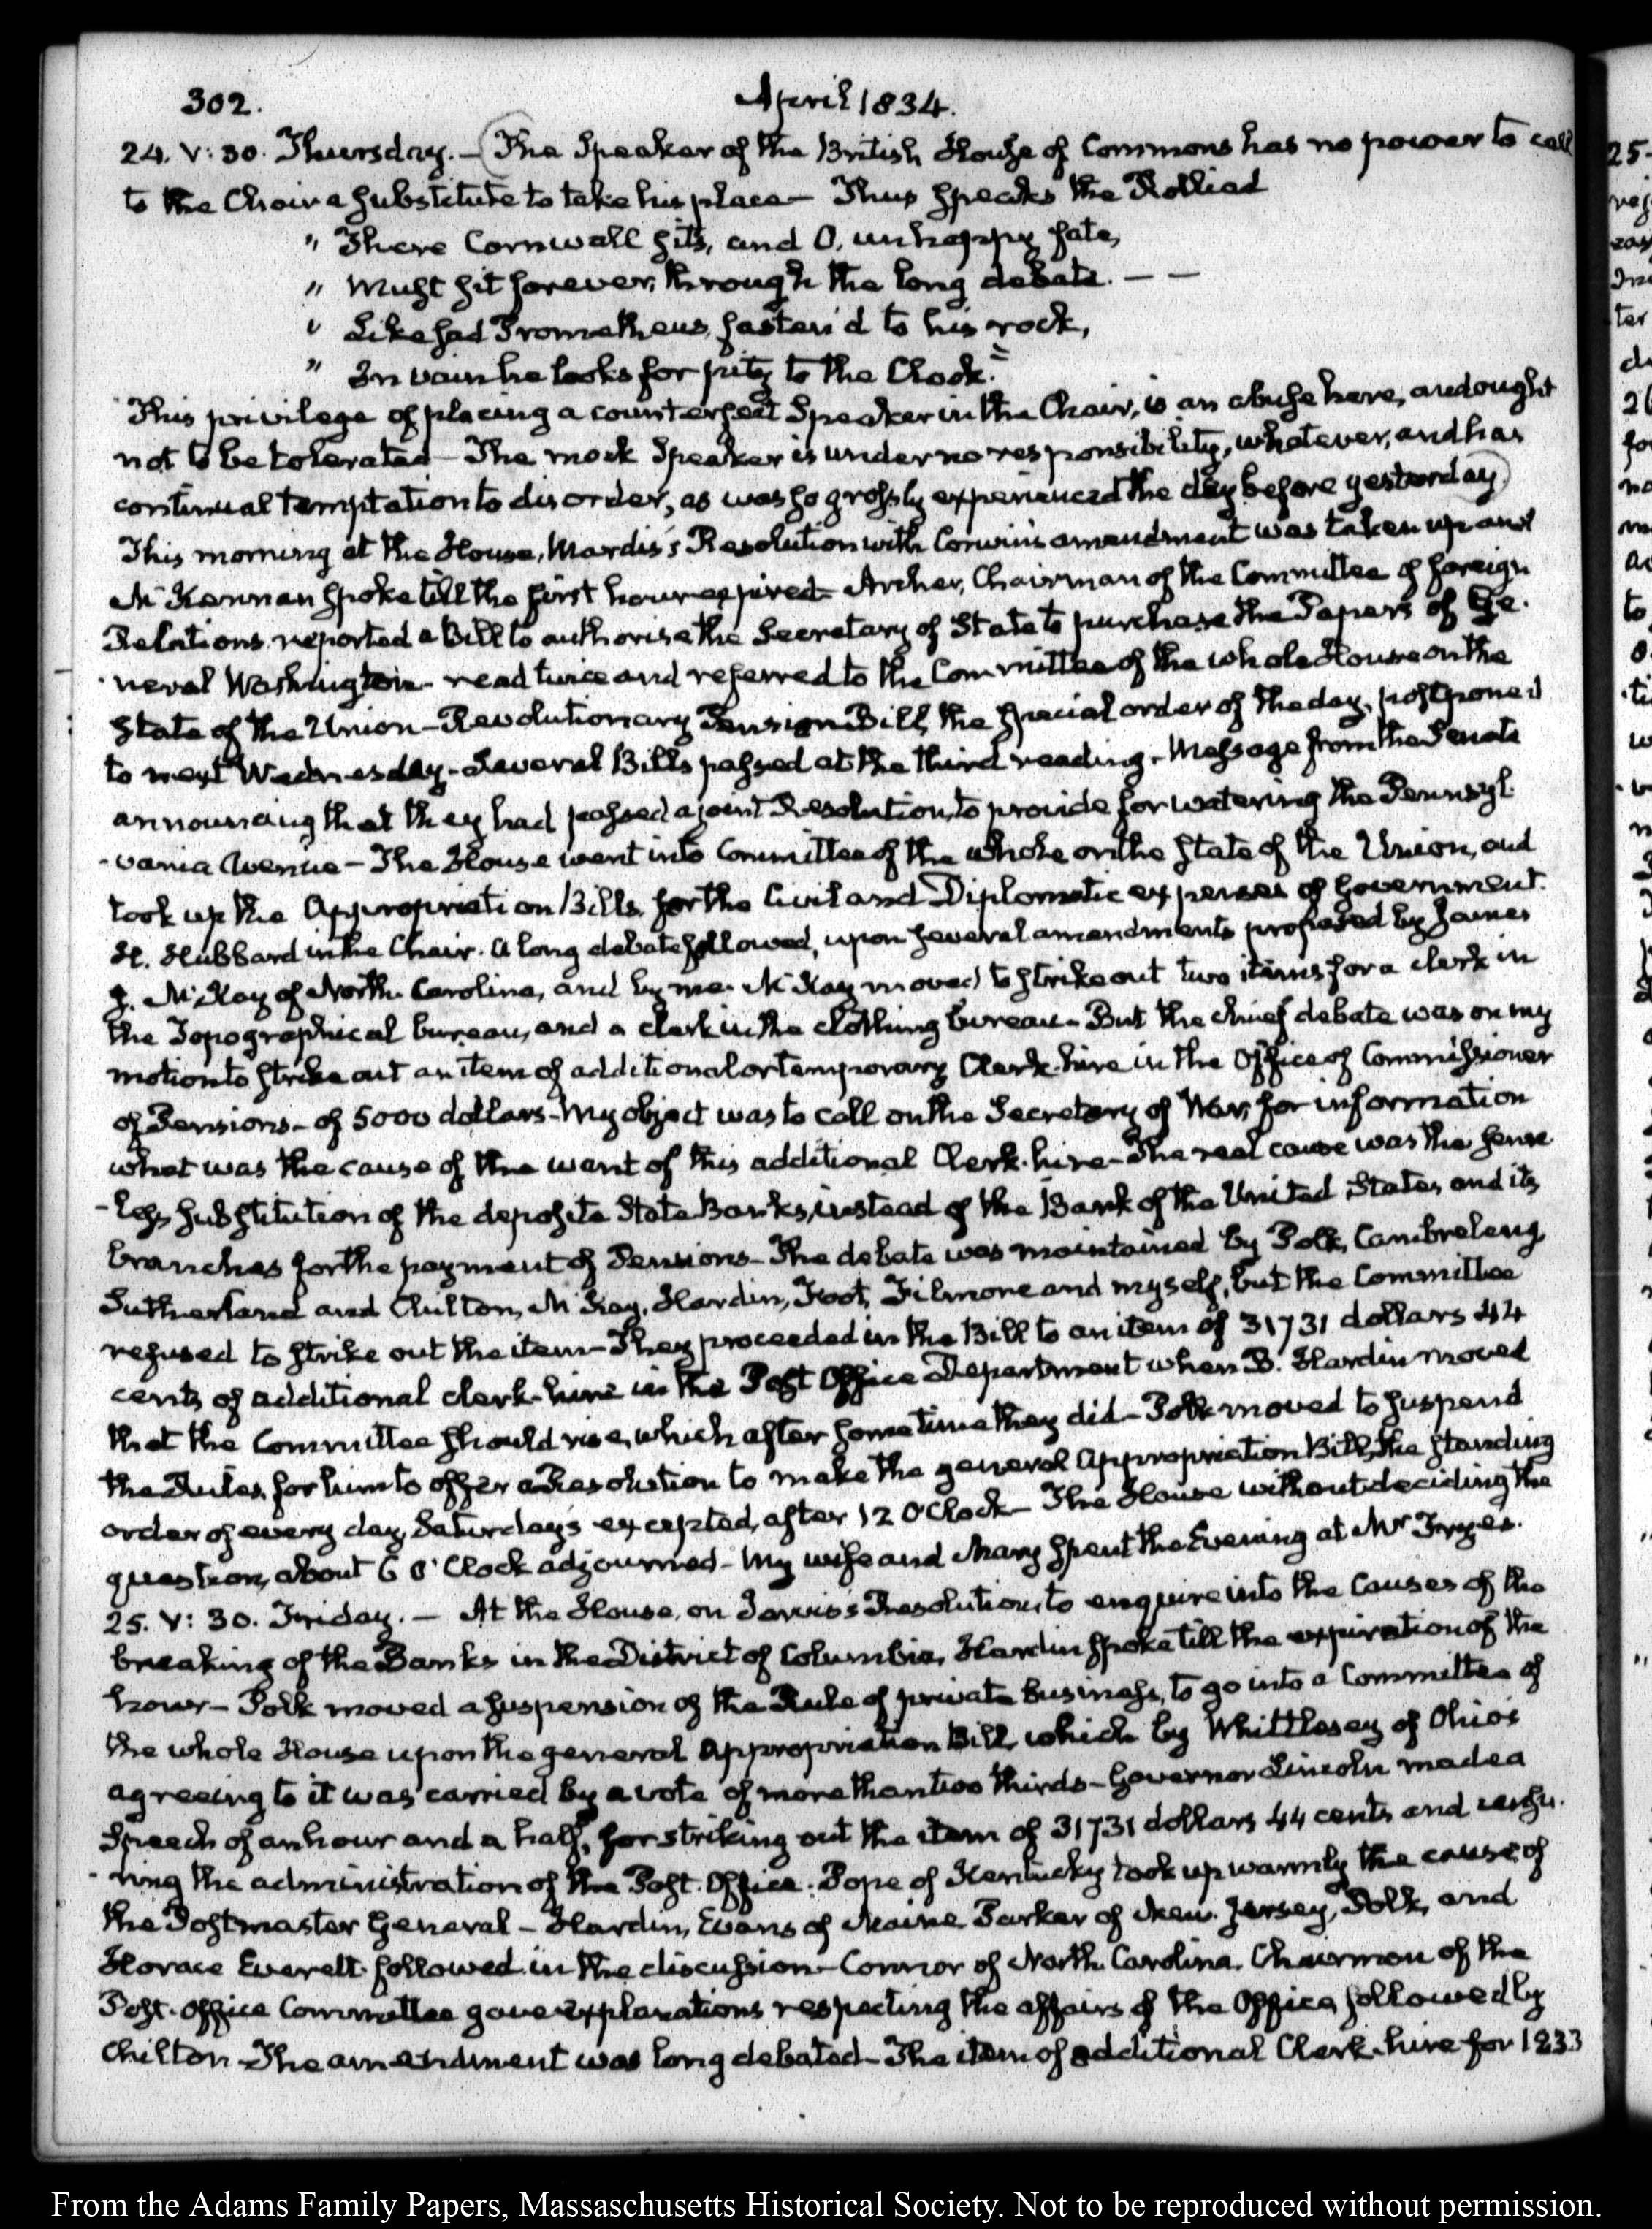 302.
April 1834.
24. V: 30. Thursday. — The Speaker of the British House of Commons has no power to call
to the Chair a substitute to take his place — Thus speaks the Rolliad
" There Cornwall sits, and O, unhappy fate,
" Must sit forever, through the long debate. — —
" Like sad Prometheus, fasten'd to his rock,
" In vain he looks for pity to the Clock."
This privilege of placing a counterfeit Speaker in the Chair, is an abuse here, and ought
not to be tolerated — The mock Speaker is under no responsibility, whatever, and has
continual temptation to disorder, as was so grossly experienced the day before yesterday.
This morning at the House, Mardis's Resolution with Corwin's amendment was taken up and
McKennan spoke till the first hour expired — Archer, Chairman of the Committee of foreign
Relations reported a Bill to authorise the Secretary of State to purchase the Papers of Ge-
-neral Washington — read twice and referred to the Committee of the whole House on the
State of the Union — Revolutionary Pension Bill, the special order of the day, postponed
to next Wednesday — Several Bills passed at the third reading — Message from the Senate
announcing that they had passed a joint Resolution, to provide for watering the Pennsyl-
-vania Avenue — The House went into Committee of the whole on the state of the Union, and
took up the Appropriation Bills, for the Civil and Diplomatic expenses of Government.
H. Hubbard in the Chair. A long debate followed, upon several amendments proposed by James
J. McKay of North-Carolina, and by me. McKay moved to strike out two items for a clerk in
the Topographical bureau, and a clerk in the clothing bureau — But the chief debate was on my
motion to strike out an item of additional or temporary Clerk-hire in the Office of Commissioner
of Pensions — of 5000 dollars — My object was to call on the Secretary of War, for information
what was the cause of the want of this additional Clerk-hire — The real cause was the sense
-less substitution of the deposite State Banks, instead of the Bank of the United States and its
branches for the payment of Pensions — The debate was maintained by Polk, Cambreleng,
Sutherland and Chilton, McKay, Hardin, Foot, Filmore and myself, but the Committee
refused to strike out the item — They proceeded in the Bill to an item of 31731 dollars 44
cents of additional clerk-hire in the Post Office Department when B. Hardin moved
that the Committee should rise, which after some time they did — Polk moved to suspend
the Rules, for him to offer a Resolution to make the general Appropriation Bill, the standing
order of every day, Saturday's excepted, after 12 O'Clock — The House without deciding the
question, about 6 O'Clock adjourned — My wife and Mary spent the Evening at Mr Frye's.
25. V: 30. Friday. — At the House, on Jarvis's Resolution, to enquire into the Causes of the
breaking of the Banks in the District of Columbia, Hardin spoke till the expiration of the
hour — Polk moved a suspension of the Rule of private business, to go into a Committee of
the whole House upon the general Appropriation Bill, which by Whittlesey of Ohio's
agreeing to it was carried by a vote of more than two thirds — Governor Lincoln made a
Speech of an hour and a half, for striking out the item of 31731 dollars 44 cents and censu-
-ring the administration of the Post-Office. Pope of Kentucky took up warmly the cause of
the Postmaster General — Hardin, Evans of Maine, Parker of New-Jersey, Polk, and
Horace Everett followed in the discussion — Connor of North-Carolina, Chairman of the
Post-Office Committee gave explanations respecting the affairs of the Office, followed by
Chilton — The amendment was long debated — The item of additional Clerk-hire for 1833
From the Adams Family Papers, Massachusetts Historical Society. Not to be reproduced without permission.